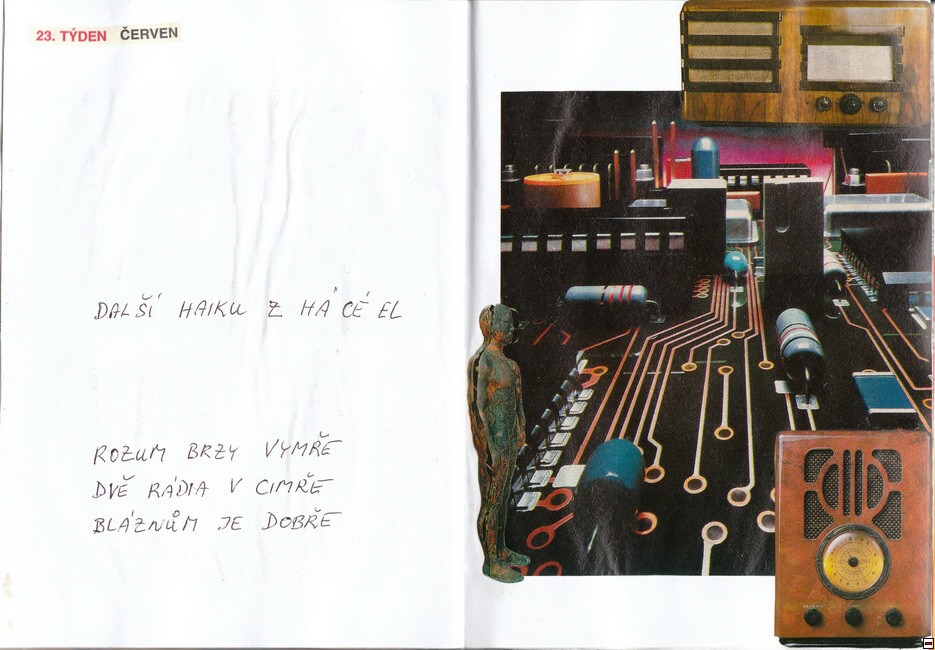 23. TÝDEN ČERVEN
DALŠÍ HAIKU Z HÁ CÉ EL
ROZUM BRZY VYMŘE
DVĚ RÁDIA V CIMŘE
BLÁZNŮM JE DOBŘE